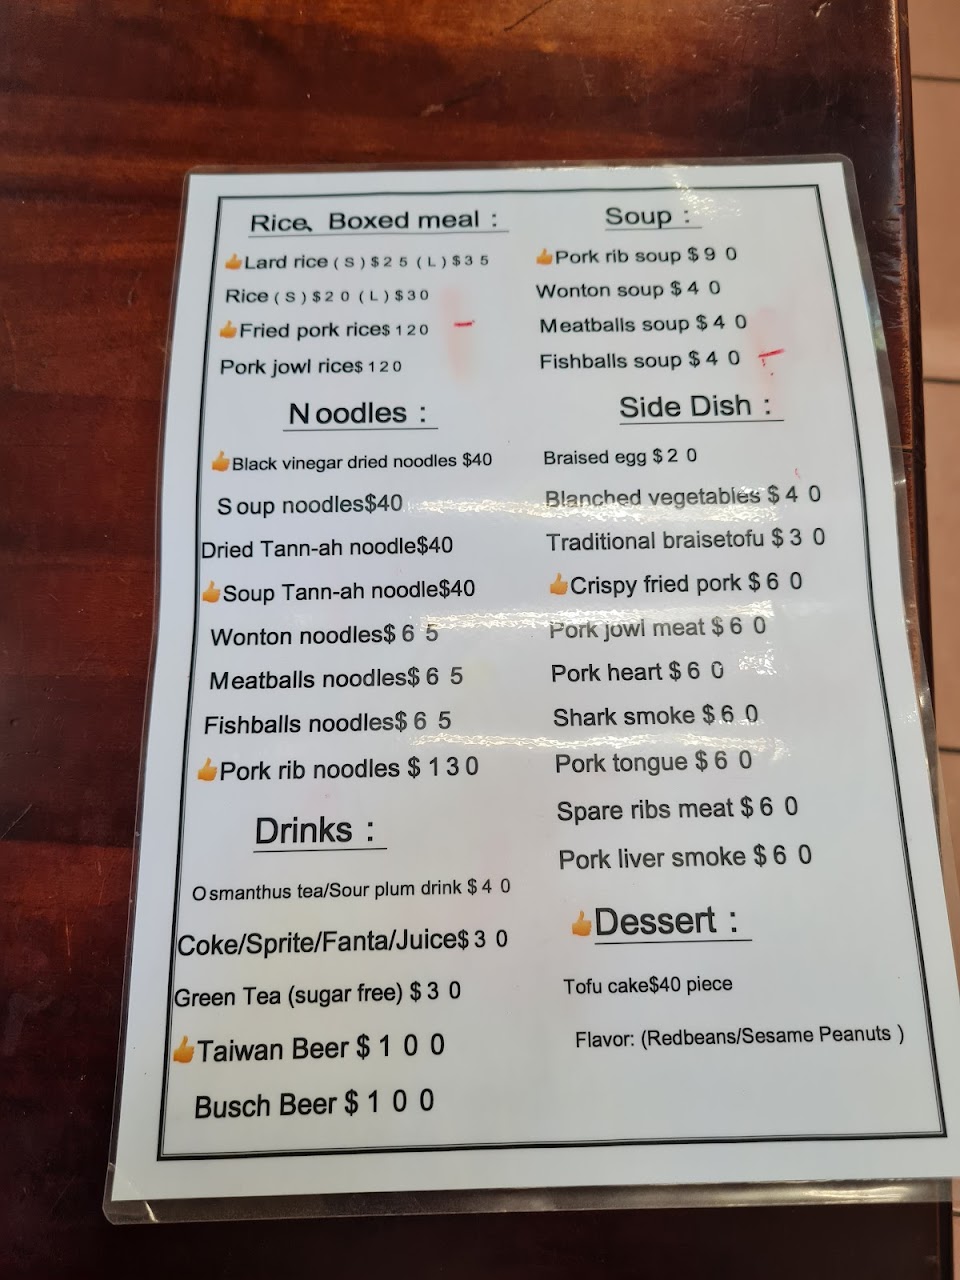 Rice、Boxed meal：
👍Lard rice（S）$25（L）$35
Rice（S）$20（L）$30
👍Fried pork rice$120
Pork jowl rice$120
Noodles：
👍Black vinegar dried noodles $40
Soup noodles$40
Dried Tann-ah noodle$40
👍Soup Tann-ah noodle$40
Wonton noodles$65
Meatballs noodles$65
Fishballs noodles$65
👍Pork rib noodles $130
Drinks：
Osmanthus tea/Sour plum drink $40
Coke/Sprite/Fanta/Juice$30
Green Tea (sugar free) $30
👍Taiwan Beer $100
Busch Beer $100
Soup：
👍Pork rib soup $90
Wonton soup $40
Meatballs soup $40
Fishballs soup $40
Side Dish：
Braised egg $20
Blanched vegetables $40
Traditional braisetofu $30
👍Crispy fried pork $60
Pork jowl meat $60
Pork heart $60
Shark smoke $60
Pork tongue $60
Spare ribs meat $60
Pork liver smoke $60
👍Dessert：
Tofu cake$40 piece
Flavor: (Redbeans/Sesame Peanuts )